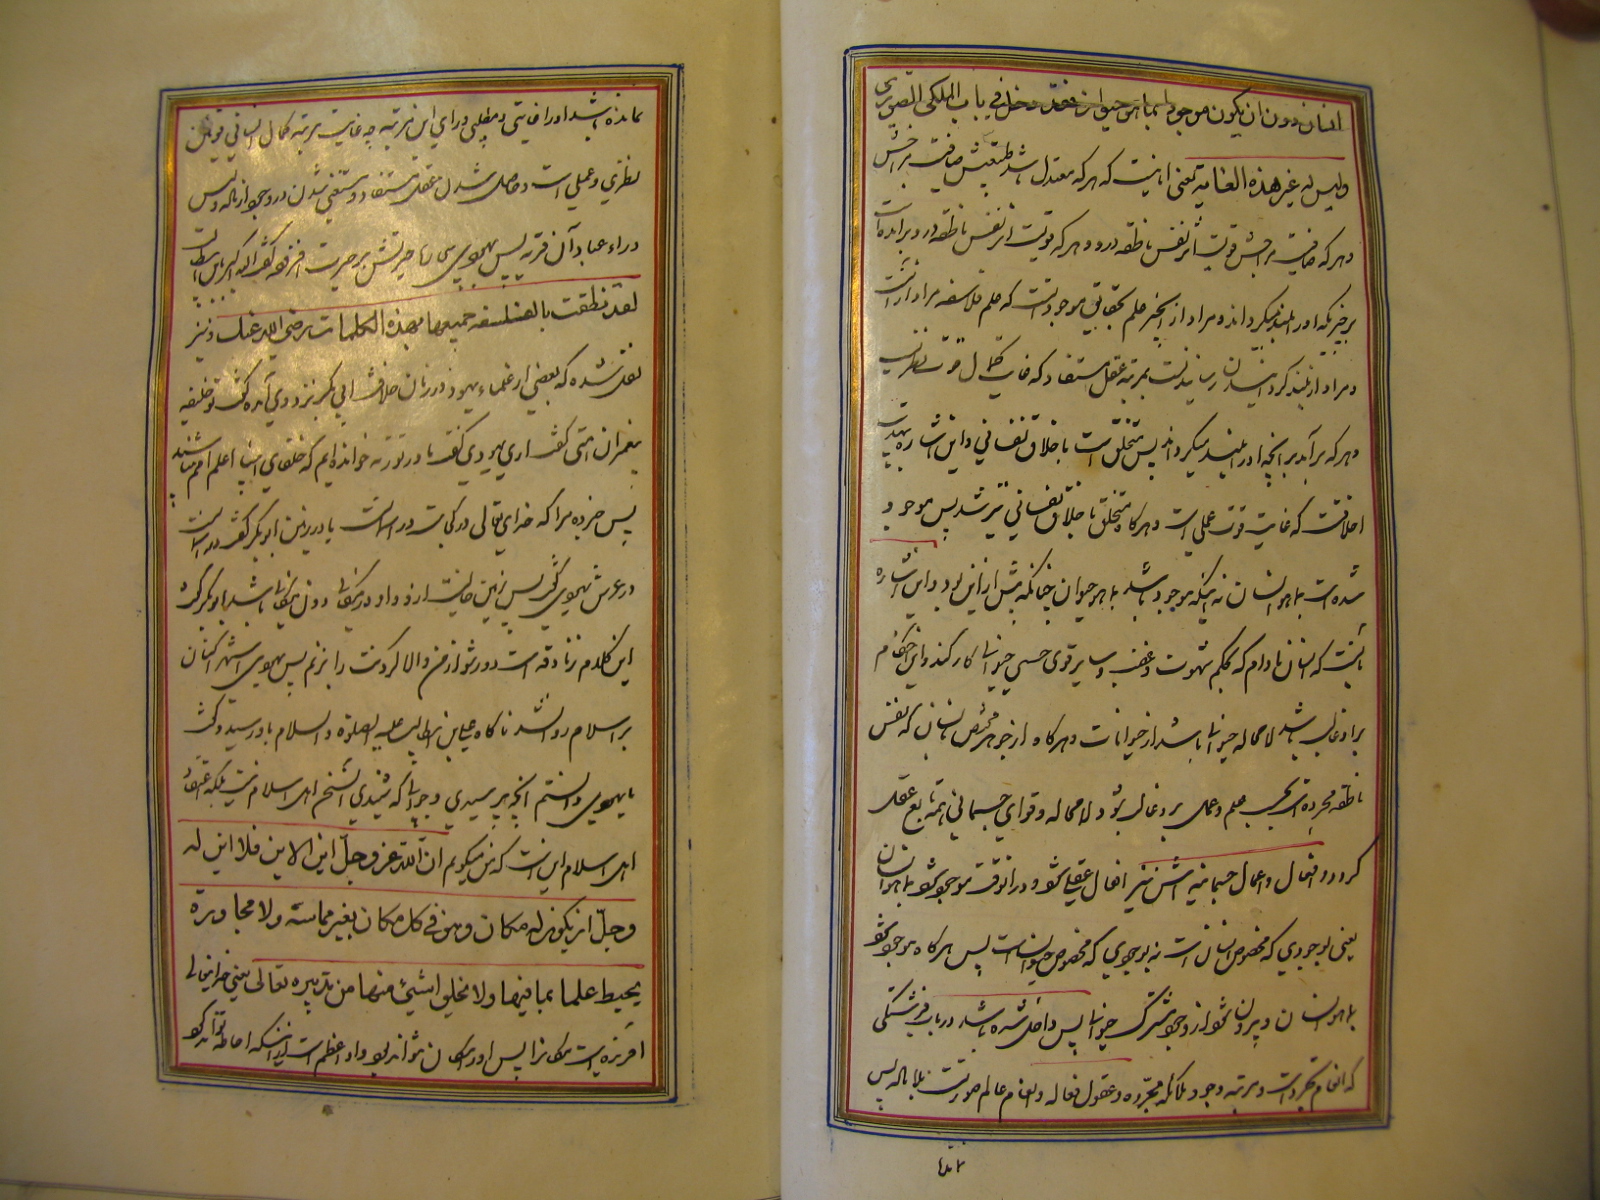 انسان دون ان یکون موجودا بما هو حیوان فقد دخل فی باب الملکی الصوری
ولیس له غیر هذه الغایة یعنی اینست که هر که معتدل باشد طبیعتش صافیست مزاجش
و هر که صافیست مزاجش قویست اثر نفس ناطقه در او و هر که قویست اثر نفس ناطقه در او برآمده است
بر چیزیکه او را بلند میکرداند و مراد از آن چیز علم بحقایق موجودات است که علم فلاسفه مراد از آنست
و مراد از بلند کردانیدن رسانیدنست بمرتبه عقل مستفاد که غایت کمال قوت نظریست
و هر که برآید بر آنچه او را بلند میکرداند پس متخلق است باخلاق نفسانی و این اشاره بتهذیب
اخلاقست که غایت قوت عملی است و هر کاه متخلق باخلاق نفسانی شد پس موجود
شده است بما هو انسان نه اینکه موجود باشد بما هو حیوان چنانکه پیش از این بود و این اشاره
بآنست که انسان مادام که بحکم شهوت و غضب و سایر قوی حسی حیوانی کار کند و این احکام
بر او غالب باشد لا محاله حیوانی باشد از حیوانات و هر کاه از جوهر مختص انسان که نفس
ناطقه مجرده است بحسب علم و عمل بر او غالب بود لا محاله و قوای جسمانی همه تابع عقل
کردد و افعال و اعمال جسمانیه اش نیز افعال عقلی شود و در آنوقت موجود شود بما هو انسان
یعنی بوجودی که مخصوص انسان است نه بوجودی که مخصوص حیوانست پس هر کاه موجود شود
بما هو انسان و بیرون شود از وجود مشترک حیوانی پس داخل شده باشد در باب فرشتکی
که عالم مجردات و مرتبه وجود ملائکه مجرده و عقول فعاله و عالم صورت بلا ماده پس
نمانده باشد او را غایتی و مطلبی ورای این مرتبه چه غایت مرتبه کمال انسانی قوتین
نظری و عملی است و حاصل شدن عقل مستفاد و مستغنی شدن در وجود از ماده و لیس
وراء عبادان قریه پس یهودی را حیرتش بر حیرت افزود کفت الله اکبر یابن ابیطالب
لقد نطقت بالفلسفه جمیعها بهذه الکلمات رضی الله عنک و نیز
نقل شده که بعضی از علماء یهود در زمان خلافت ابی بکر نزد وی آمده کفت تو خلیفه
پیغمبر این امتی کفت آری یهودی کفت ما در توریة خوانده ایم که خلفای انبیا اعلم امم میباشند
پس خبر ده مرا که خدای تعالی در کجاست در آسمانست یا در زمین ابو بکر کفت در آسمانست
در عرش یهودی کفت پس زمین خالیست از او و او در مکانی دون مکانی باشد ابو بکر کفت
این کلام زنادقه است دور شو از من و الا کردنت را بزنم پس یهودی استهزا کنان
بر اسلام روانه شد ناکاه علی بن ابیطالب علیه الصلوة و السلام باو رسید و کفت
یا یهودی دانستم آنچه پرسیدی و جوابی که شنیدی آن سخن اهل اسلام نیست بلکه اعتقاد
اهل اسلام این است که من میکویم ان الله عز و جل این الاین فلا این له
و جل ان یکون له مکان و هو فی کل مکان بغیر مماسة و لا مجاورة
یحیط علما بما فیها و لا یخلو شیئ منها من تدبیره تعالی یعنی خدایتعالی
آفریده است مکان را پس او را مکان نتواند بود و او اعظم است از آنکه احاطه تواند کرد